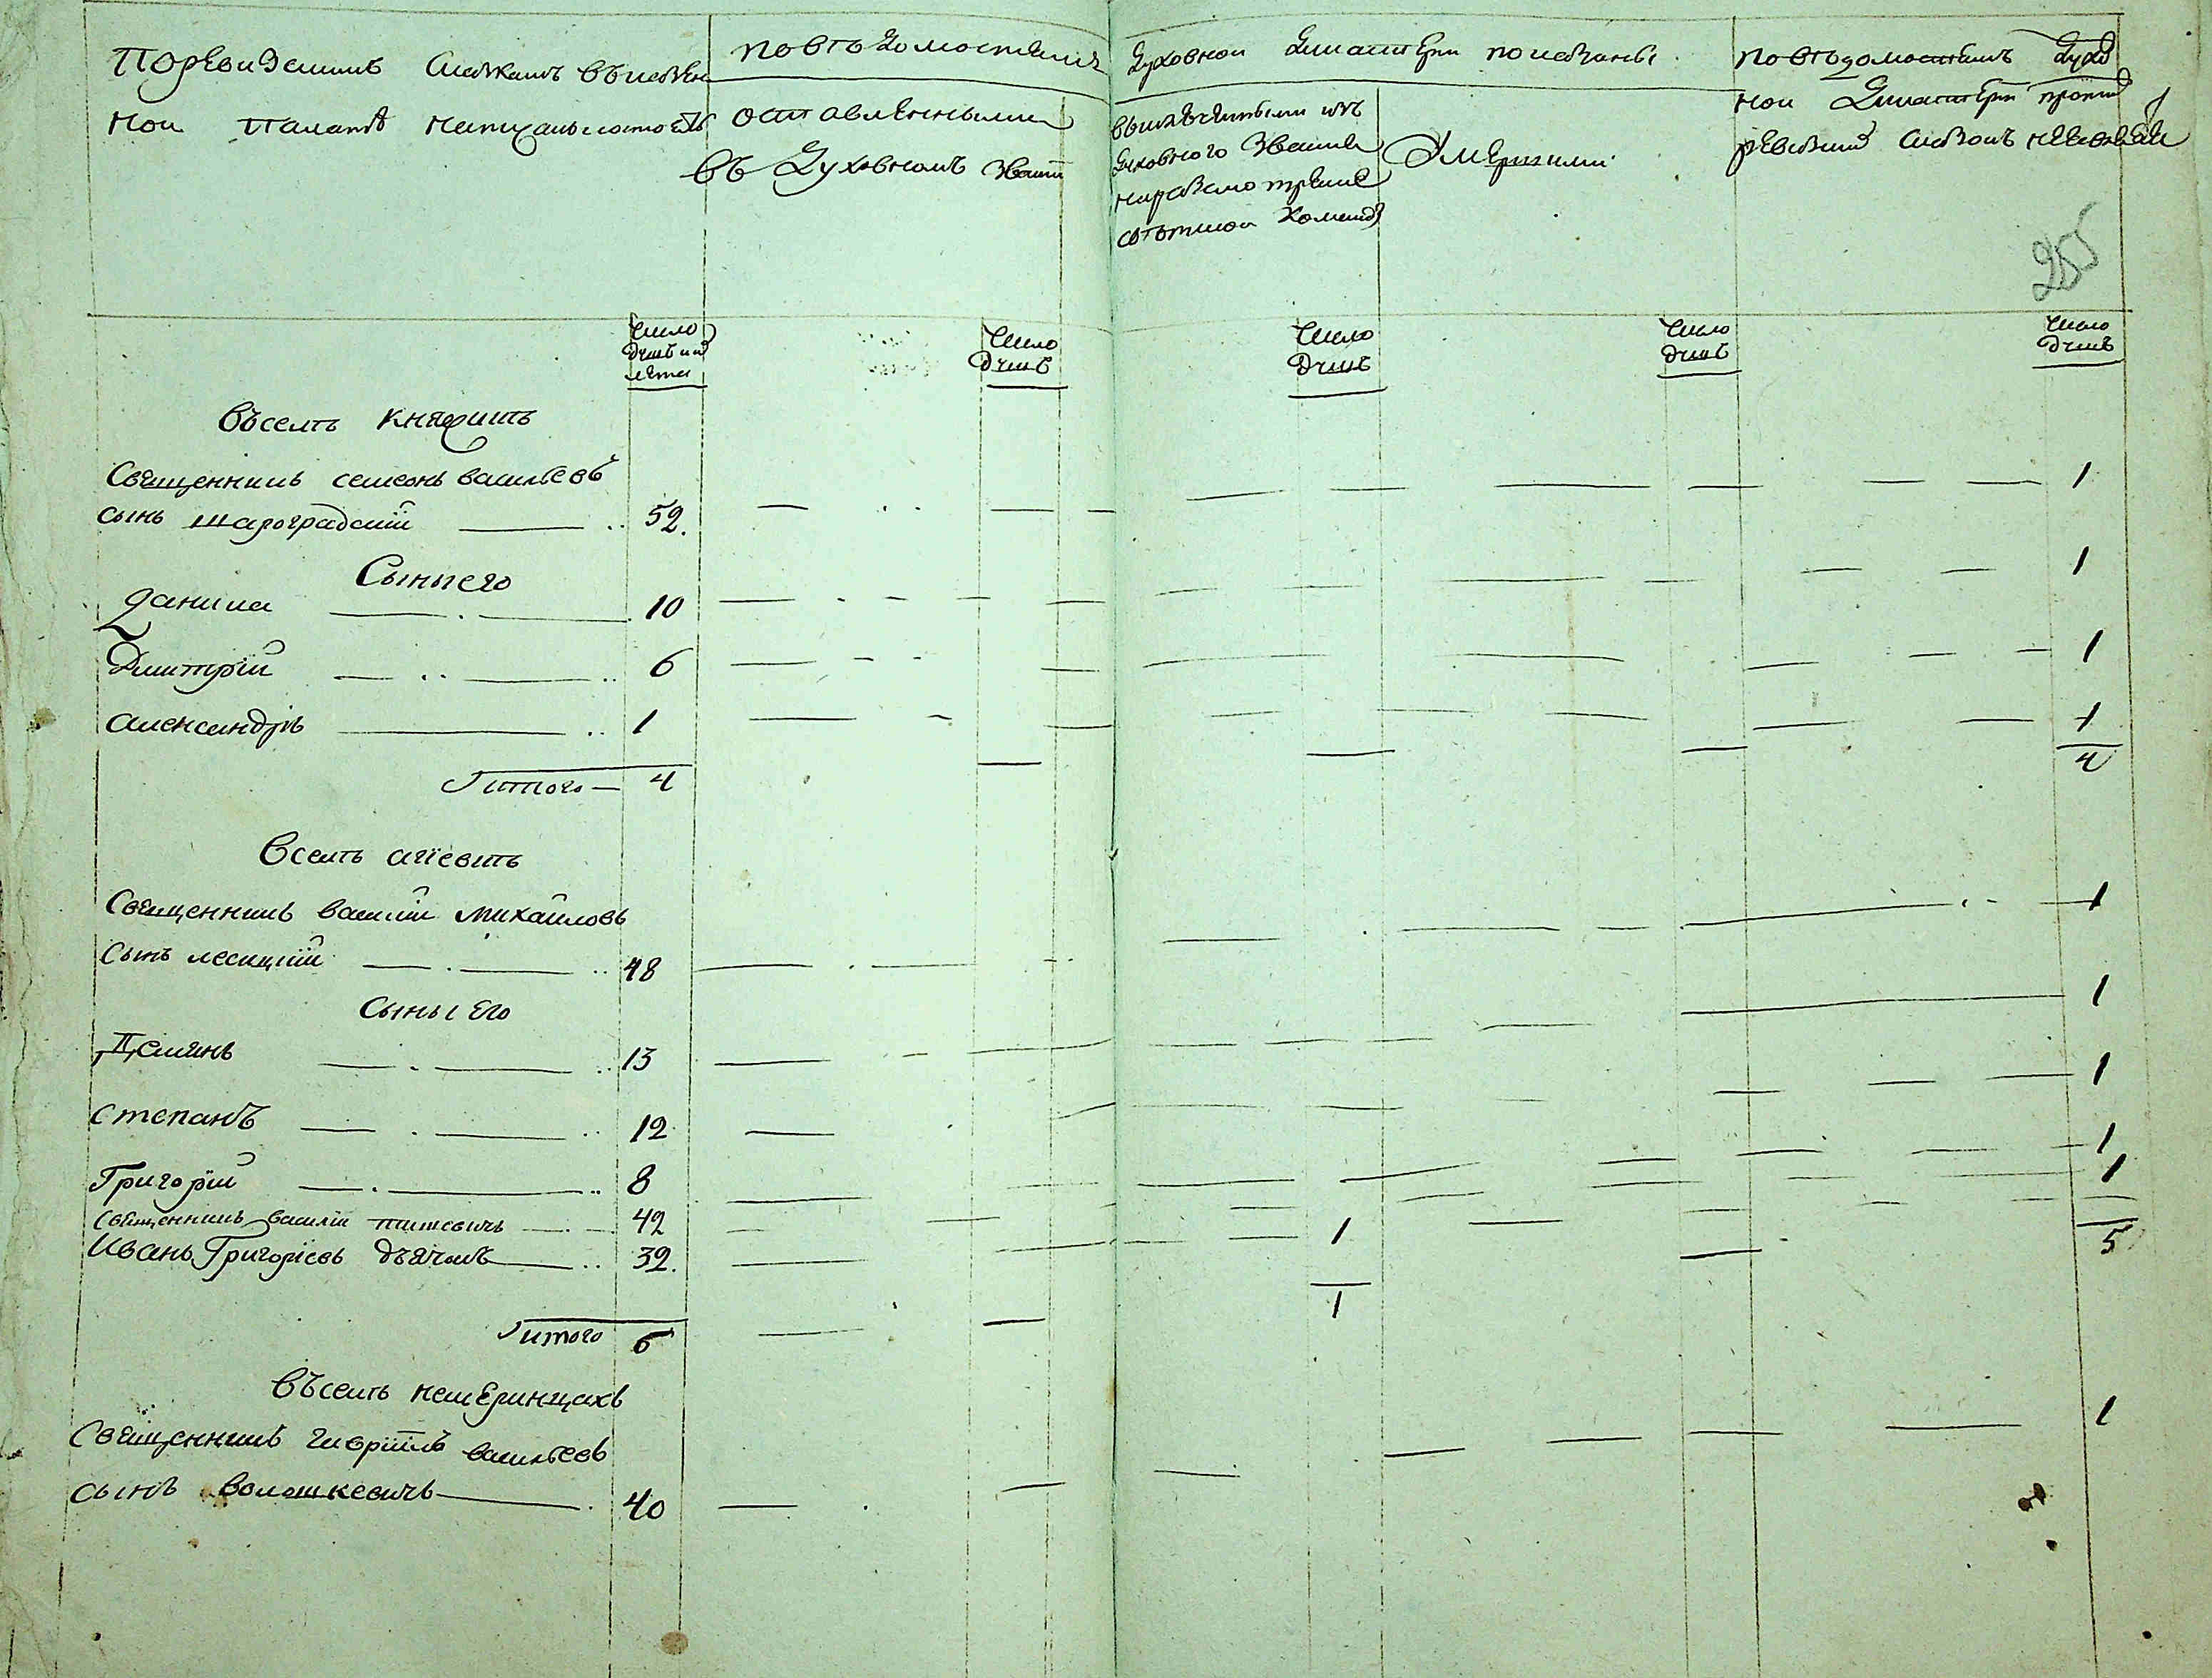 По ревизскимъ сказкамъ въ казен
ной Палатѣ натуральнo состоитъ
По вѣдомостямъ
оставленными
въ Духовномъ звании
Духовной Дикастерии показаны
выключенными изъ
Духовного звания
на разсмотрение
свѣтской команды
Умершими
По вѣдомостямъ Духов
ной Дикастерии против
ревизкихъ сказокъ не показаны
255
Число
душъ и их
лета
Число
душъ
Число
душъ
Число
душъ
Число
душъ
въ селѣ Княжитъ
Священникъ семеонъ васильевъ 1
сынъ шароградский 52.
Сыны его
Данила 10 1
Дмитрий 6 1
александръ 1 1
Итого 4 4
В селѣ
Священникъ василий михайловъ 1
Сынъ лесицкий 48
Сыны его
Демянъ 13 1
Степанъ 12 1
Григорий 8 1
священникъ василий 42 1
Иванъ Григориевъ дъячокъ 32. 1
1 5
Итого 6
въ селѣ немеринцахъ
Священникъ гавриилъ васильевъ 1
сынъ волошкевичъ 40